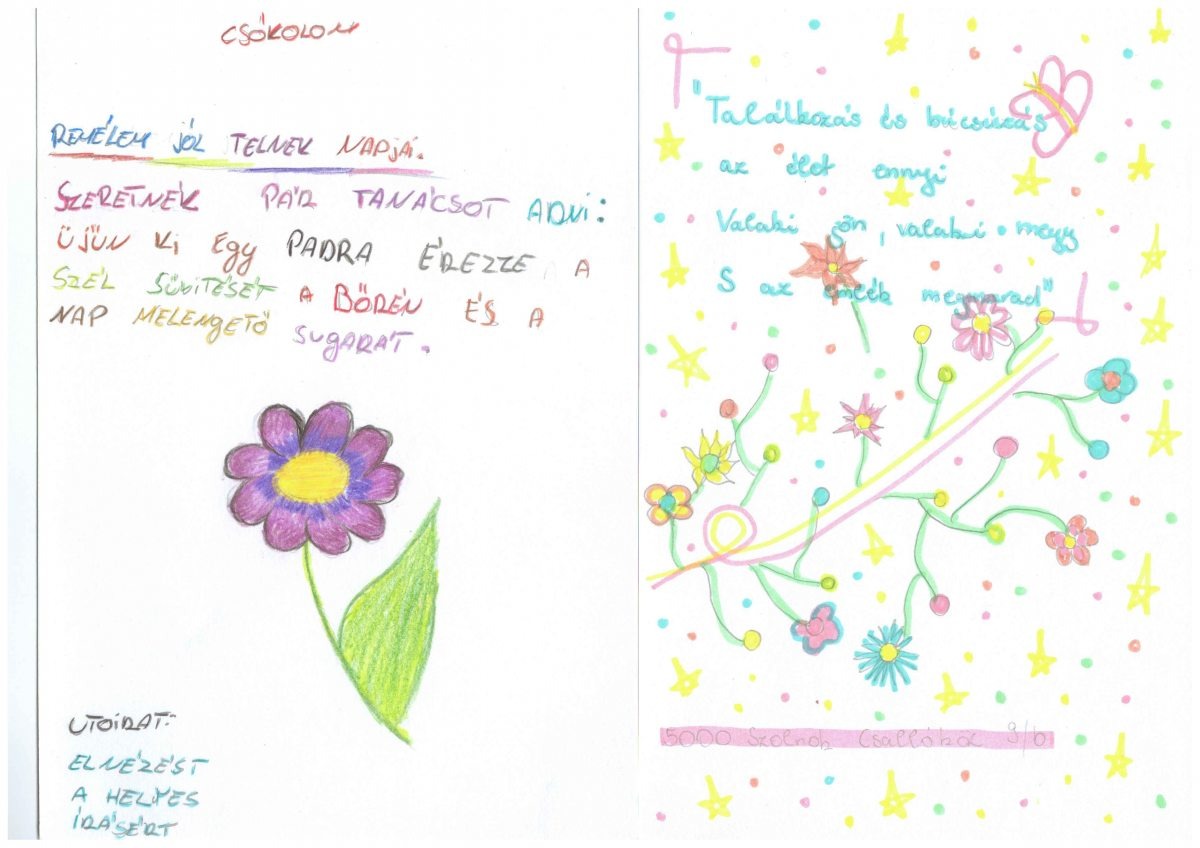 CSÓKOLOM
REMÉLEM JÓL TELNEK NAPJAi.
SZERETNÉK PÁR TANÁCSOT ADNi:
ÜJÜN Ki Egy PADRA ÉREZZE A
SZÉL SÜVITÉSÉT A BŐRÉN ÉS A
NAP MELENGETŐ SUgARÁT.
UTÓIRAT:
ELNÉZÉST
A HELYES
ÍRÁSÉRT
"Találkozás és búcsúzás
az élet ennyi
Valaki jön, valaki megy
S az emlék megmarad"
5000 Szolnok Csallóköz 9/b.